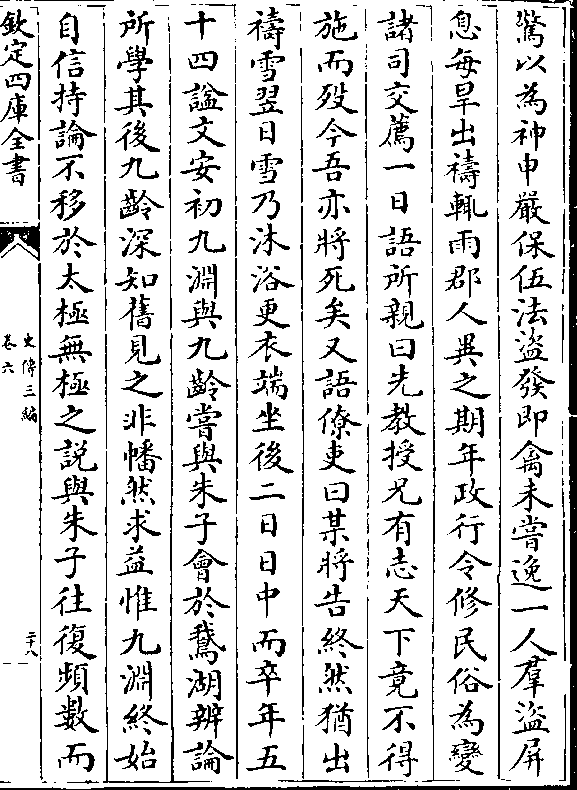 驚以為神申嚴保伍法盜發即禽未嘗逸一人羣盜屏
息每旱出禱輒雨郡人異之期年政行令修民俗為變
諸司交薦一日語所親曰先教授兄有志天下竟不得
施而殁今吾亦將死矣又語僚吏曰某將告終然猶出
禱雪翌日雪乃沐浴更衣端坐後二日日中而卒年五
十四諡文安初九淵與九齡嘗與朱子會於鵞湖辨論
所學其後九齡深知舊見之非幡然求益惟九淵終始
自信持論不移於太極無極之說與朱子往復頻數而
欽定四庫全書
史傳三編
卷六
二十八